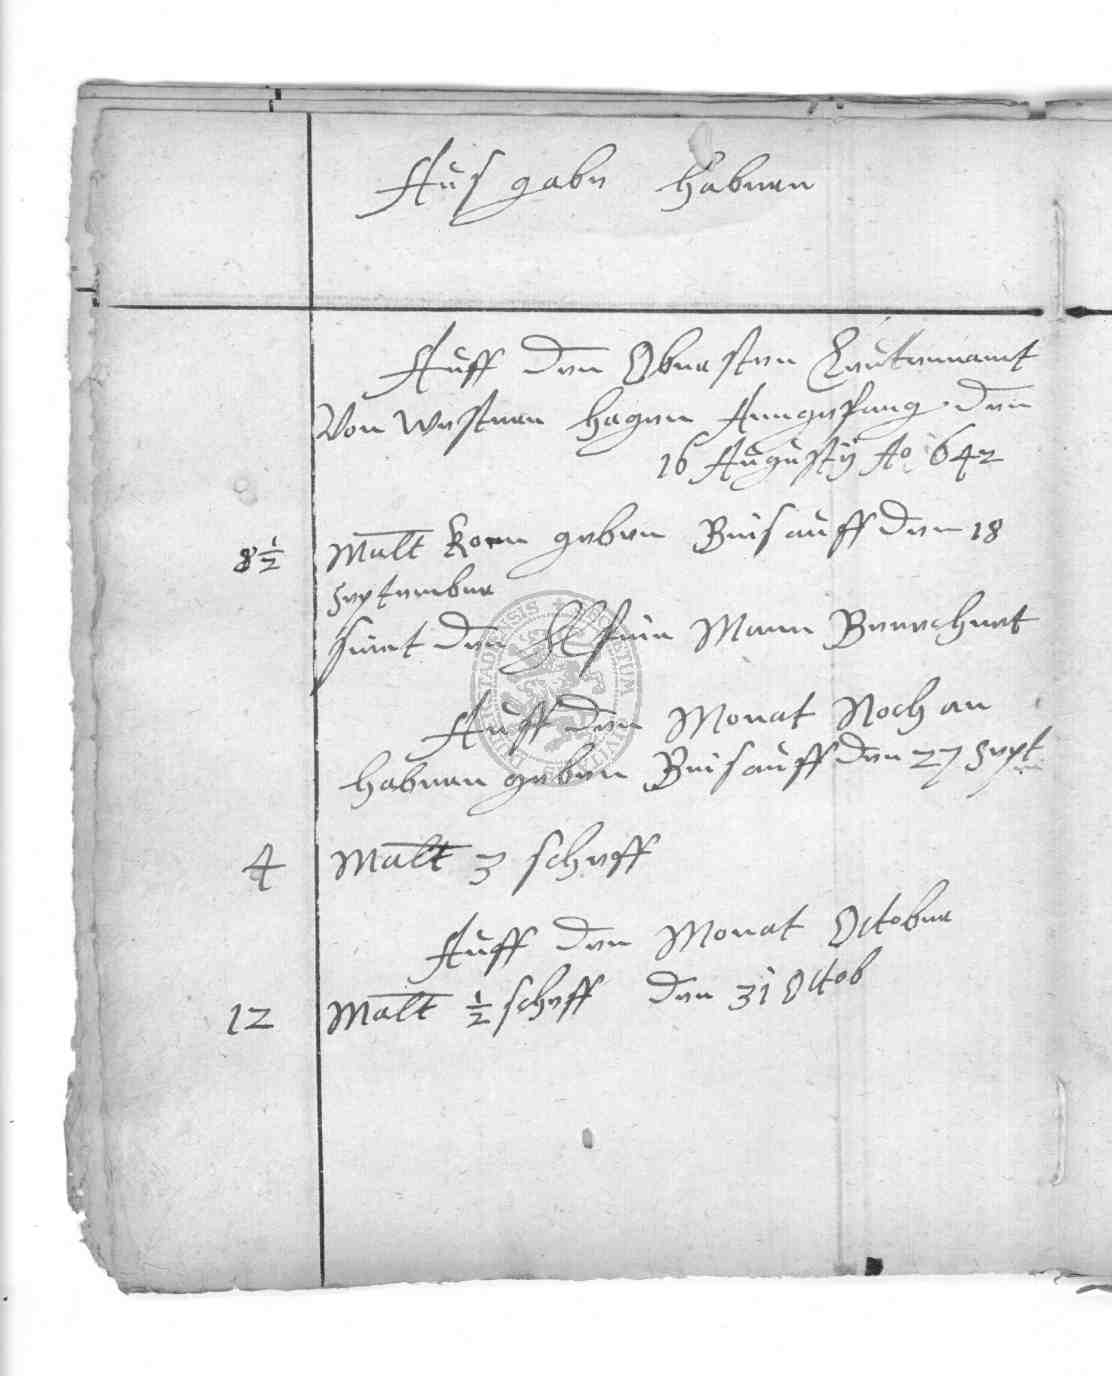 Ausgabe Haberen
Auff den Obersten Leutennamt
Von Westeren Hagen Anngefang den
16 Augustij Ao 642
8½ Malt Korn geben Biis auff den 18
September
hinnt den Mann Berechnet
Auff den Monat Noch an
Haberen geben Biis auff den 27 Sept
4 Malt 3 scheff
Auff den Monat October
12 Malt ½ scheff den 31 Octob